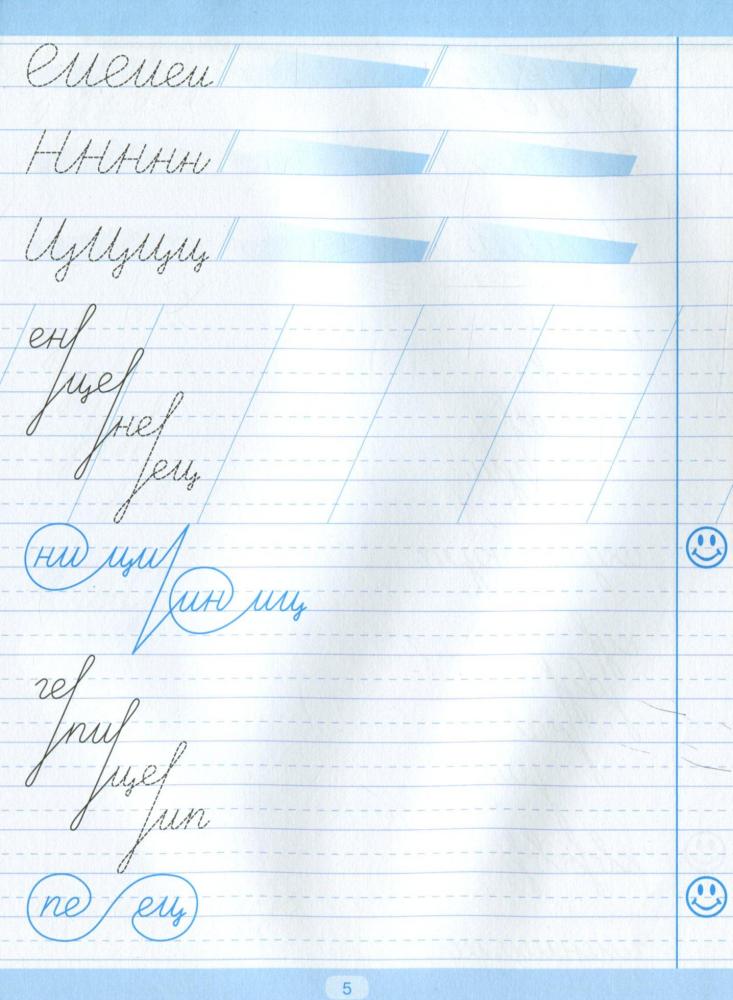 еиеиеи
Ннннн
Цццц
ен
це
не
ец
ни ци
ин иц
ге
пи
це
ип
пе ец
5